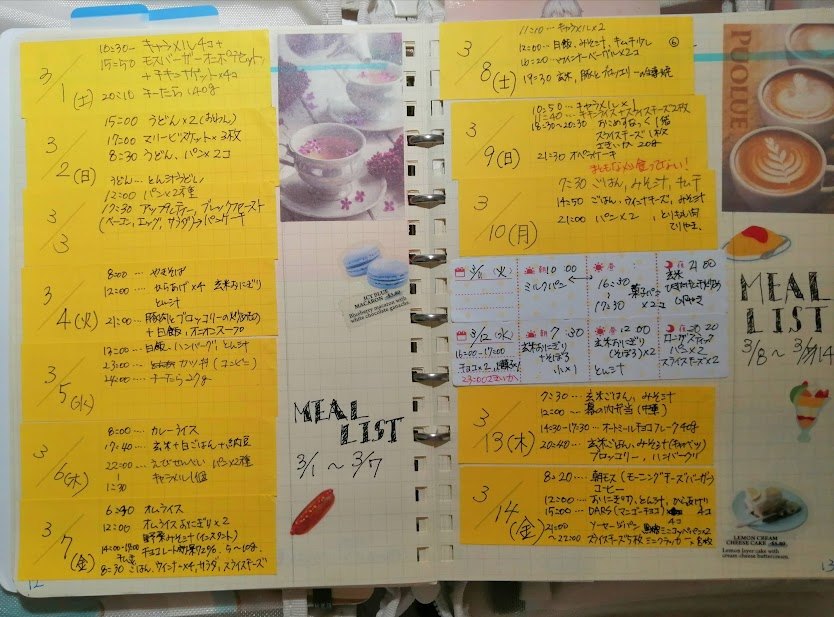 3/1(土)
10:30- キャラメル4コ+
15:50 モスバーガーオニポテセット
+チキンナゲット×4コ
20:10 チータラ 40g
3/2(日)
15:00 うどん×2(おわん)
17:00 マリービスケット×3枚
8:30 うどん、パン×2コ
うどん…とん汁うどん
3/3
12:00 パン×2種
17:30 アップルティー, ブレックファースト
(ベーコン,エッグ,サラダ)+パンケーキ
3/4(火)
8:00… やきそば
12:00… からあげ×4 玄米おにぎり
とん汁
21:00… 豚肉とブロッコリーの
+白飯,オニオンスープ
3/5(水)
13:00… 白飯,ハンバーグ,とん汁
23:00… カツサンド(コンビニ)
24:00… チーたら27g
3/6(木)
8:00… カレーライス
17:40… 玄米+白ごはん+納豆
22:00… えびせんべい パン×2種
1:30 キャラメル1個
3/7(金)
6:40 オムライス
12:00 オムライスおにぎり×2
野菜みそ汁(インスタント)
14:00-18:00 チョコレート効果72%, 5~10ヶ
8:30 ごはん,ウィンナー×4,サラダ,スライスチーズ
MEAL
LIST
3/1 ~ 3/7
ICY BLUE
MACARON
Blueberry macaron with
white chocolate ganache.
12
3/8(土)
11:10… キャラメル×2
12:00… 白飯、みそ汁、キムチ
16:20… ウインナーベーグル×2コ
19:30 玄米,豚とブロッコリーの
3/9(日)
10:50… キャラメル×1
11:40… チキンライス+スライスチーズ2枚
18:30~20:30 おこめすなっく1袋
スライスチーズ1枚
さきいか20g
21:30 オペラケーキ
まともなメシ食ってない!
3/10(月)
7:30 ごはん,みそ汁,キムチ
14:50 ごはん,ウィンナー,チーズ,みそ汁
21:00 パン×2, とりもも肉
てりやき
3/11(火)
朝 10:00
ミルクパン
昼
16:30
17:30 菓子パン×2コ
夜 21:00
玄米
3/12(水)
16:00-17:00
朝 7:30
玄米おにぎり
+そぼろ
小×1
昼 12:00
玄米おにぎり
(そぼろ)×2
とん汁
夜 20:20
パン×2
スライスチーズ×2
3/13(木)
7:30… 玄米ごはん,みそ汁
12:00… 幕の内弁当(中華)
14:30-17:30… オートミールチョコフレーク40g
20:40… 玄米ごはん,みそ汁(キャベツ)
ブロッコリー,ハンバーグ
3/14(金)
8:20… 朝モス(モーニングチーズバーガー)
コーヒー
12:00… おにぎり,とん汁,からあげ
15:00… DARS(マンゴーチョコ) 4コ
21:00 ソーセージパン ミニコッペパン×2
~22:00 スライスチーズ5枚 ミニクラッカー
PUOLUE
MEAL
LIST
3/8 ~ 3/14
LEMON CREAM
CHEESE CAKE
Lemon layer cake with
cream cheese buttercream.
13